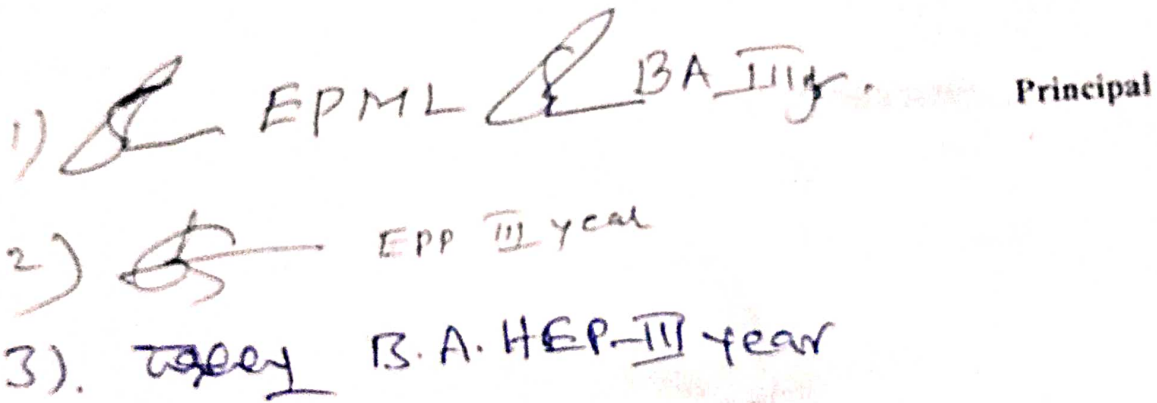 1) EPML BA III yr. Principal
2) EPP III year
3). B.A. HEP-III year